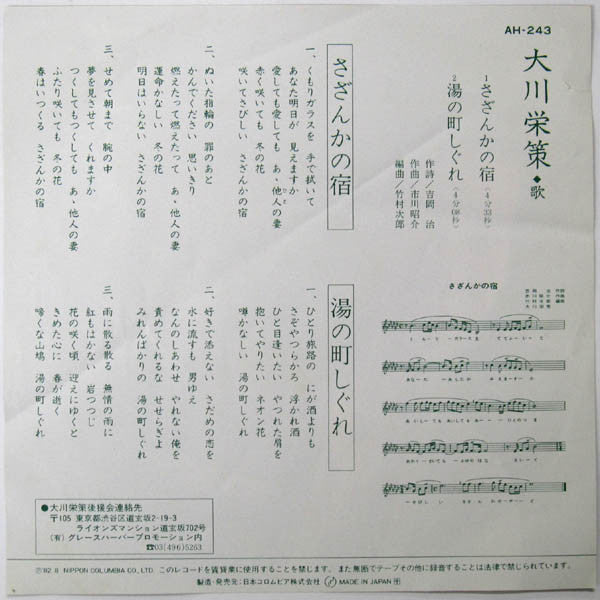 AH-243
大川栄策◆歌
1 さざんかの宿〈4分33秒〉
2 湯の町しぐれ〈4分08秒〉
作詩/吉岡 治
作曲/市川昭介
編曲/竹村次郎
さざんかの宿
一、くもりガラスを 手で拭いて
あなた明日が 見えますか
愛しても愛しても あゝ他人の妻
赤く咲いても 冬の花
咲いてさびしい さざんかの宿
二、ぬいた指輪の 罪のあと
かんでください 思いきり
燃えたって燃えたって あゝ他人の妻
運命かなしい 冬の花
明日はいらない さざんかの宿
三、せめて朝まで 腕の中
夢を見させて くれますか
つくしてもつくしても あゝ他人の妻
ふたり咲いても 冬の花
春はいつくる さざんかの宿
湯の町しぐれ
一、ひとり旅路の にが酒よりも
さぞやつらかろ 浮かれ酒
ひと目逢いたい やつれた肩を
抱いてやりたい ネオン花
噂かなしい 湯の町しぐれ
二、好きで添えない さだめの恋を
水に流すも 男ゆえ
なんのしあわせ やれない俺を
責めてくれるな せせらぎよ
みれんばかりの 湯の町しぐれ
三、雨に散る散る 無情の雨に
紅もはかない 岩つつじ
花の咲く頃 迎えにゆくと
きめた心に 春が逝く
啼くな山鳩 湯の町しぐれ
さざんかの宿
●大川栄策後援会連絡先
〒105 東京都渋谷区道玄坂2-19-3
ライオンズマンション道玄坂702号
(有)グレースハーバープロモーション内
☎03(496)5263
Ⓟ'82.8 NIPPON COLUMBIA CO., LTD. このレコードを賃貸業に使用することを禁じます。また無断でテープその他に録音することは法律で禁じられています。
製造・発売元:日本コロムビア株式会社 MADE IN JAPAN